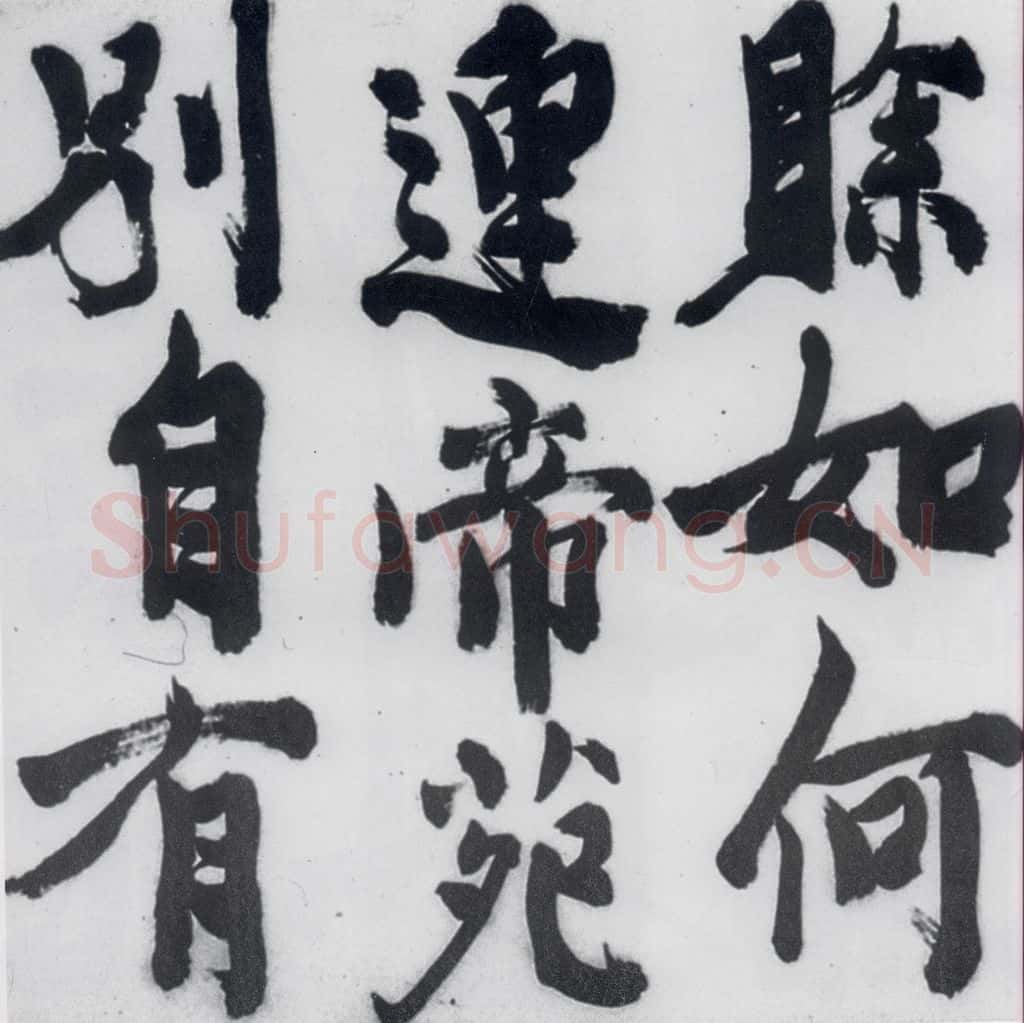 賖如何
連帝苑
別自有
Shufawang.CN